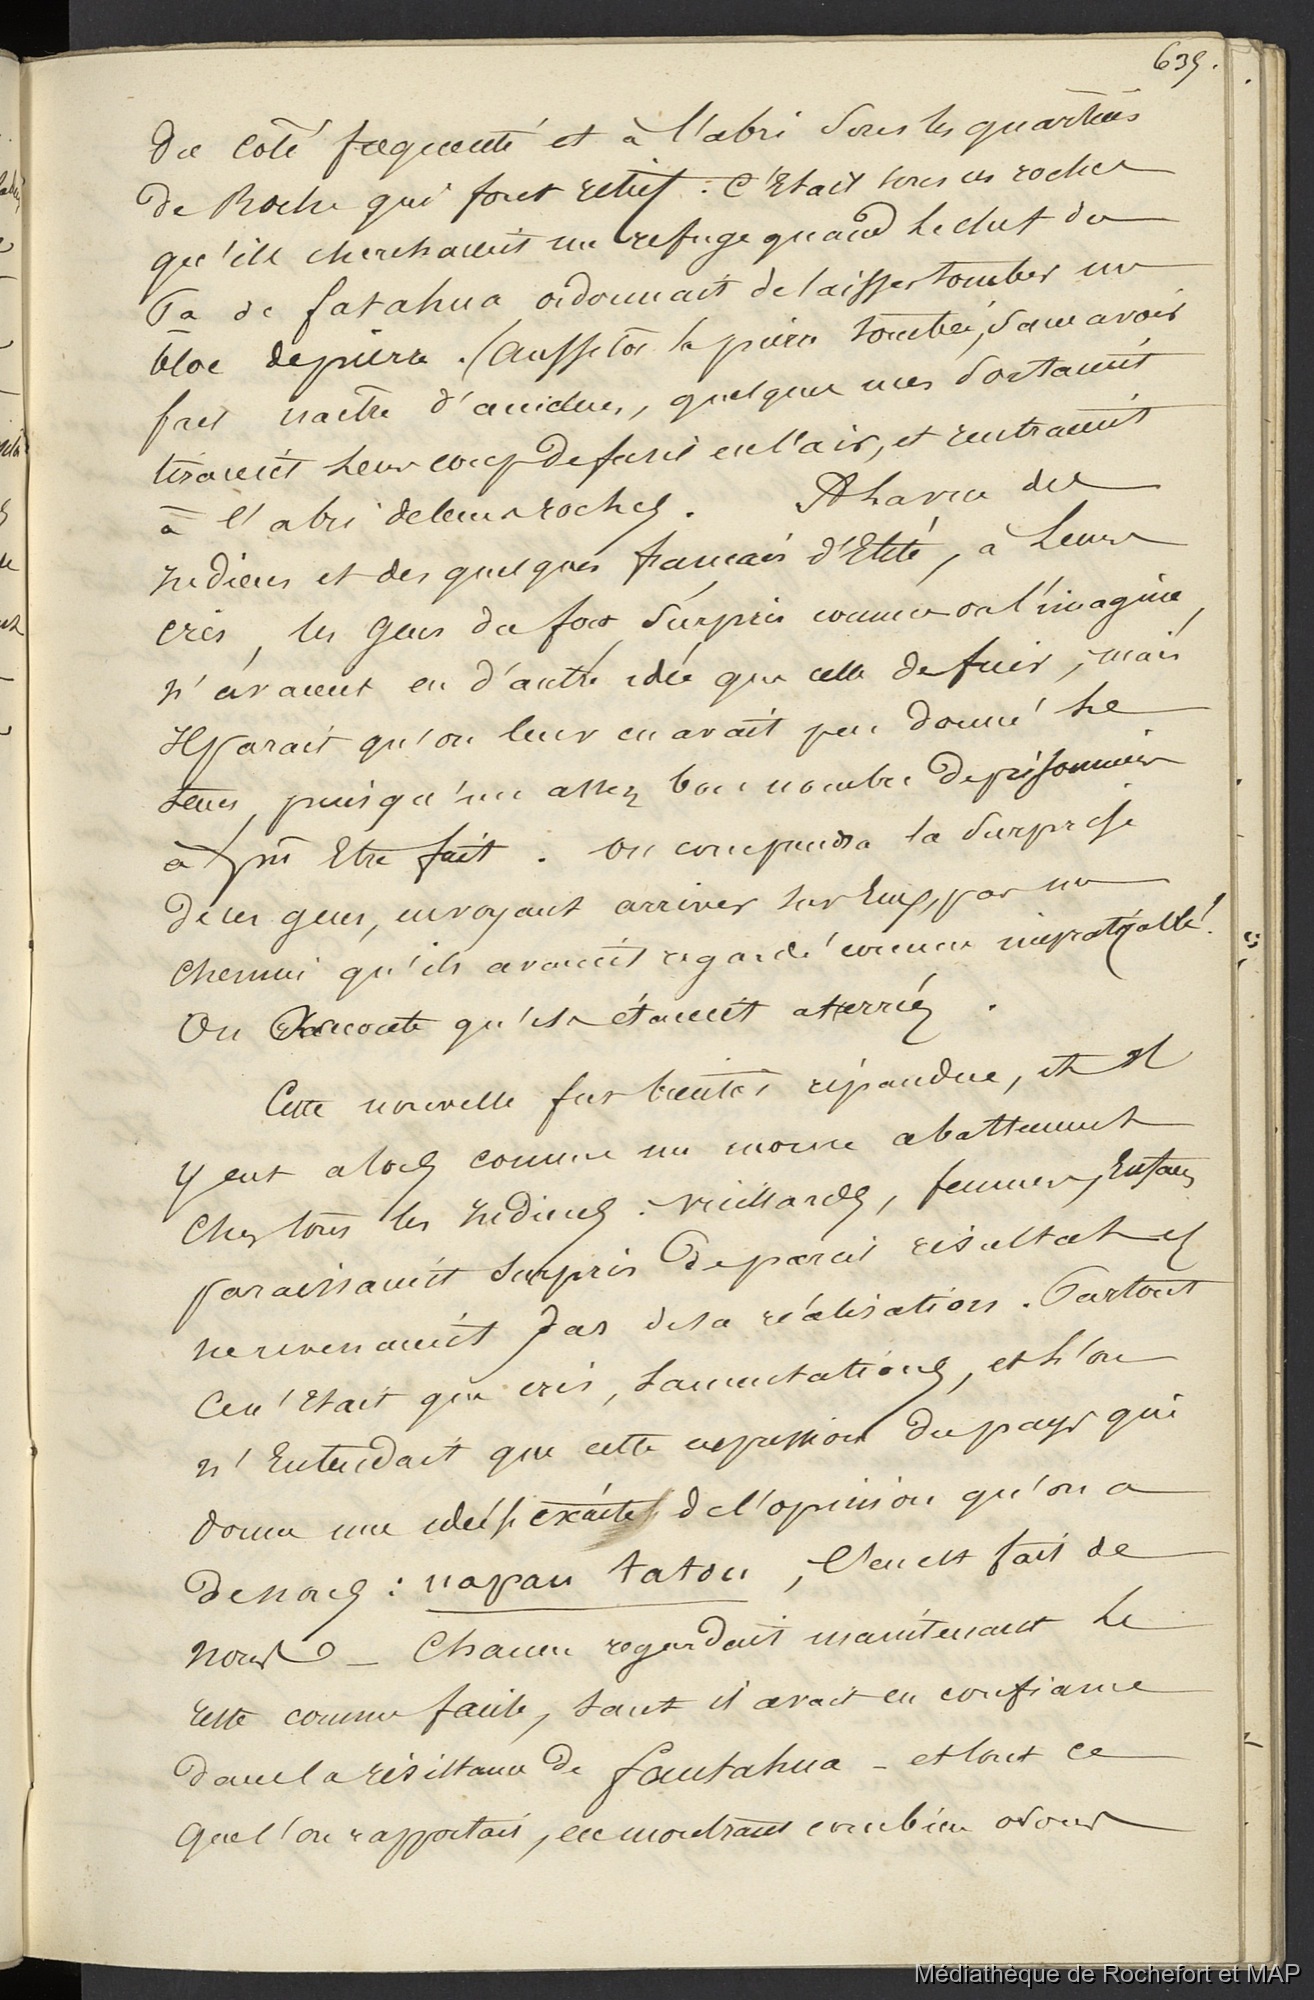 639.
du coté fréquenté et à l'abri sous les quartiers
de Roche qui font relief. C'Etait sous ces roches
qu'ils cherchaient un refuge quand le chef du
Pa de fatahua ordonnait de laisser tomber un
bloc de pierre. (Aussitôt la pierre tombée, sans avoir
fait naître d'accidens, quelques uns sortaient
tiraient leur coup de fusil en l'air, et rentraient
à l'abri de leurs roches. A la vue des
Indiens et des quelques français d'Elité, à leurs
cris, les gens du fort surpris comme on l'imagine,
n'avaient eu d'autre idée que celle de fuir, mais
Il parait qu'on leur en avait peu donné le
tems, puisqu'un assez bon nombre de prisonniers
à pu Etre fait. On comprendra la surprise
de ces gens, en voyant arriver sur Eux, par un
chemin qu'ils avaient regardé comme impraticable!
On Raconte qu'ils étaient atterrés.
Cette nouvelle fut bientôt répandue, et Il
y eut alors comme un morne abattement
chez tous les Indiens. Vieillards, femmes, Enfans
paraissaient surpris de pareil résultat et
ne revenaient pas de sa réalisation. Partout
Ce n'Etait que cris, lamentations, et l'on
n'Entendait que cette expression du pays qui
donne une idée exacte de l'opinion qu'on a
de nous : napau tatou, C'en est fait de
nous _ Chacun regardait maintenant le
reste comme facile, tant il avait eu confiance
dans la résistance de fautahua _ et tout ce
que l'on rapportait, en montrant combien
Médiathèque de Rochefort et MAP